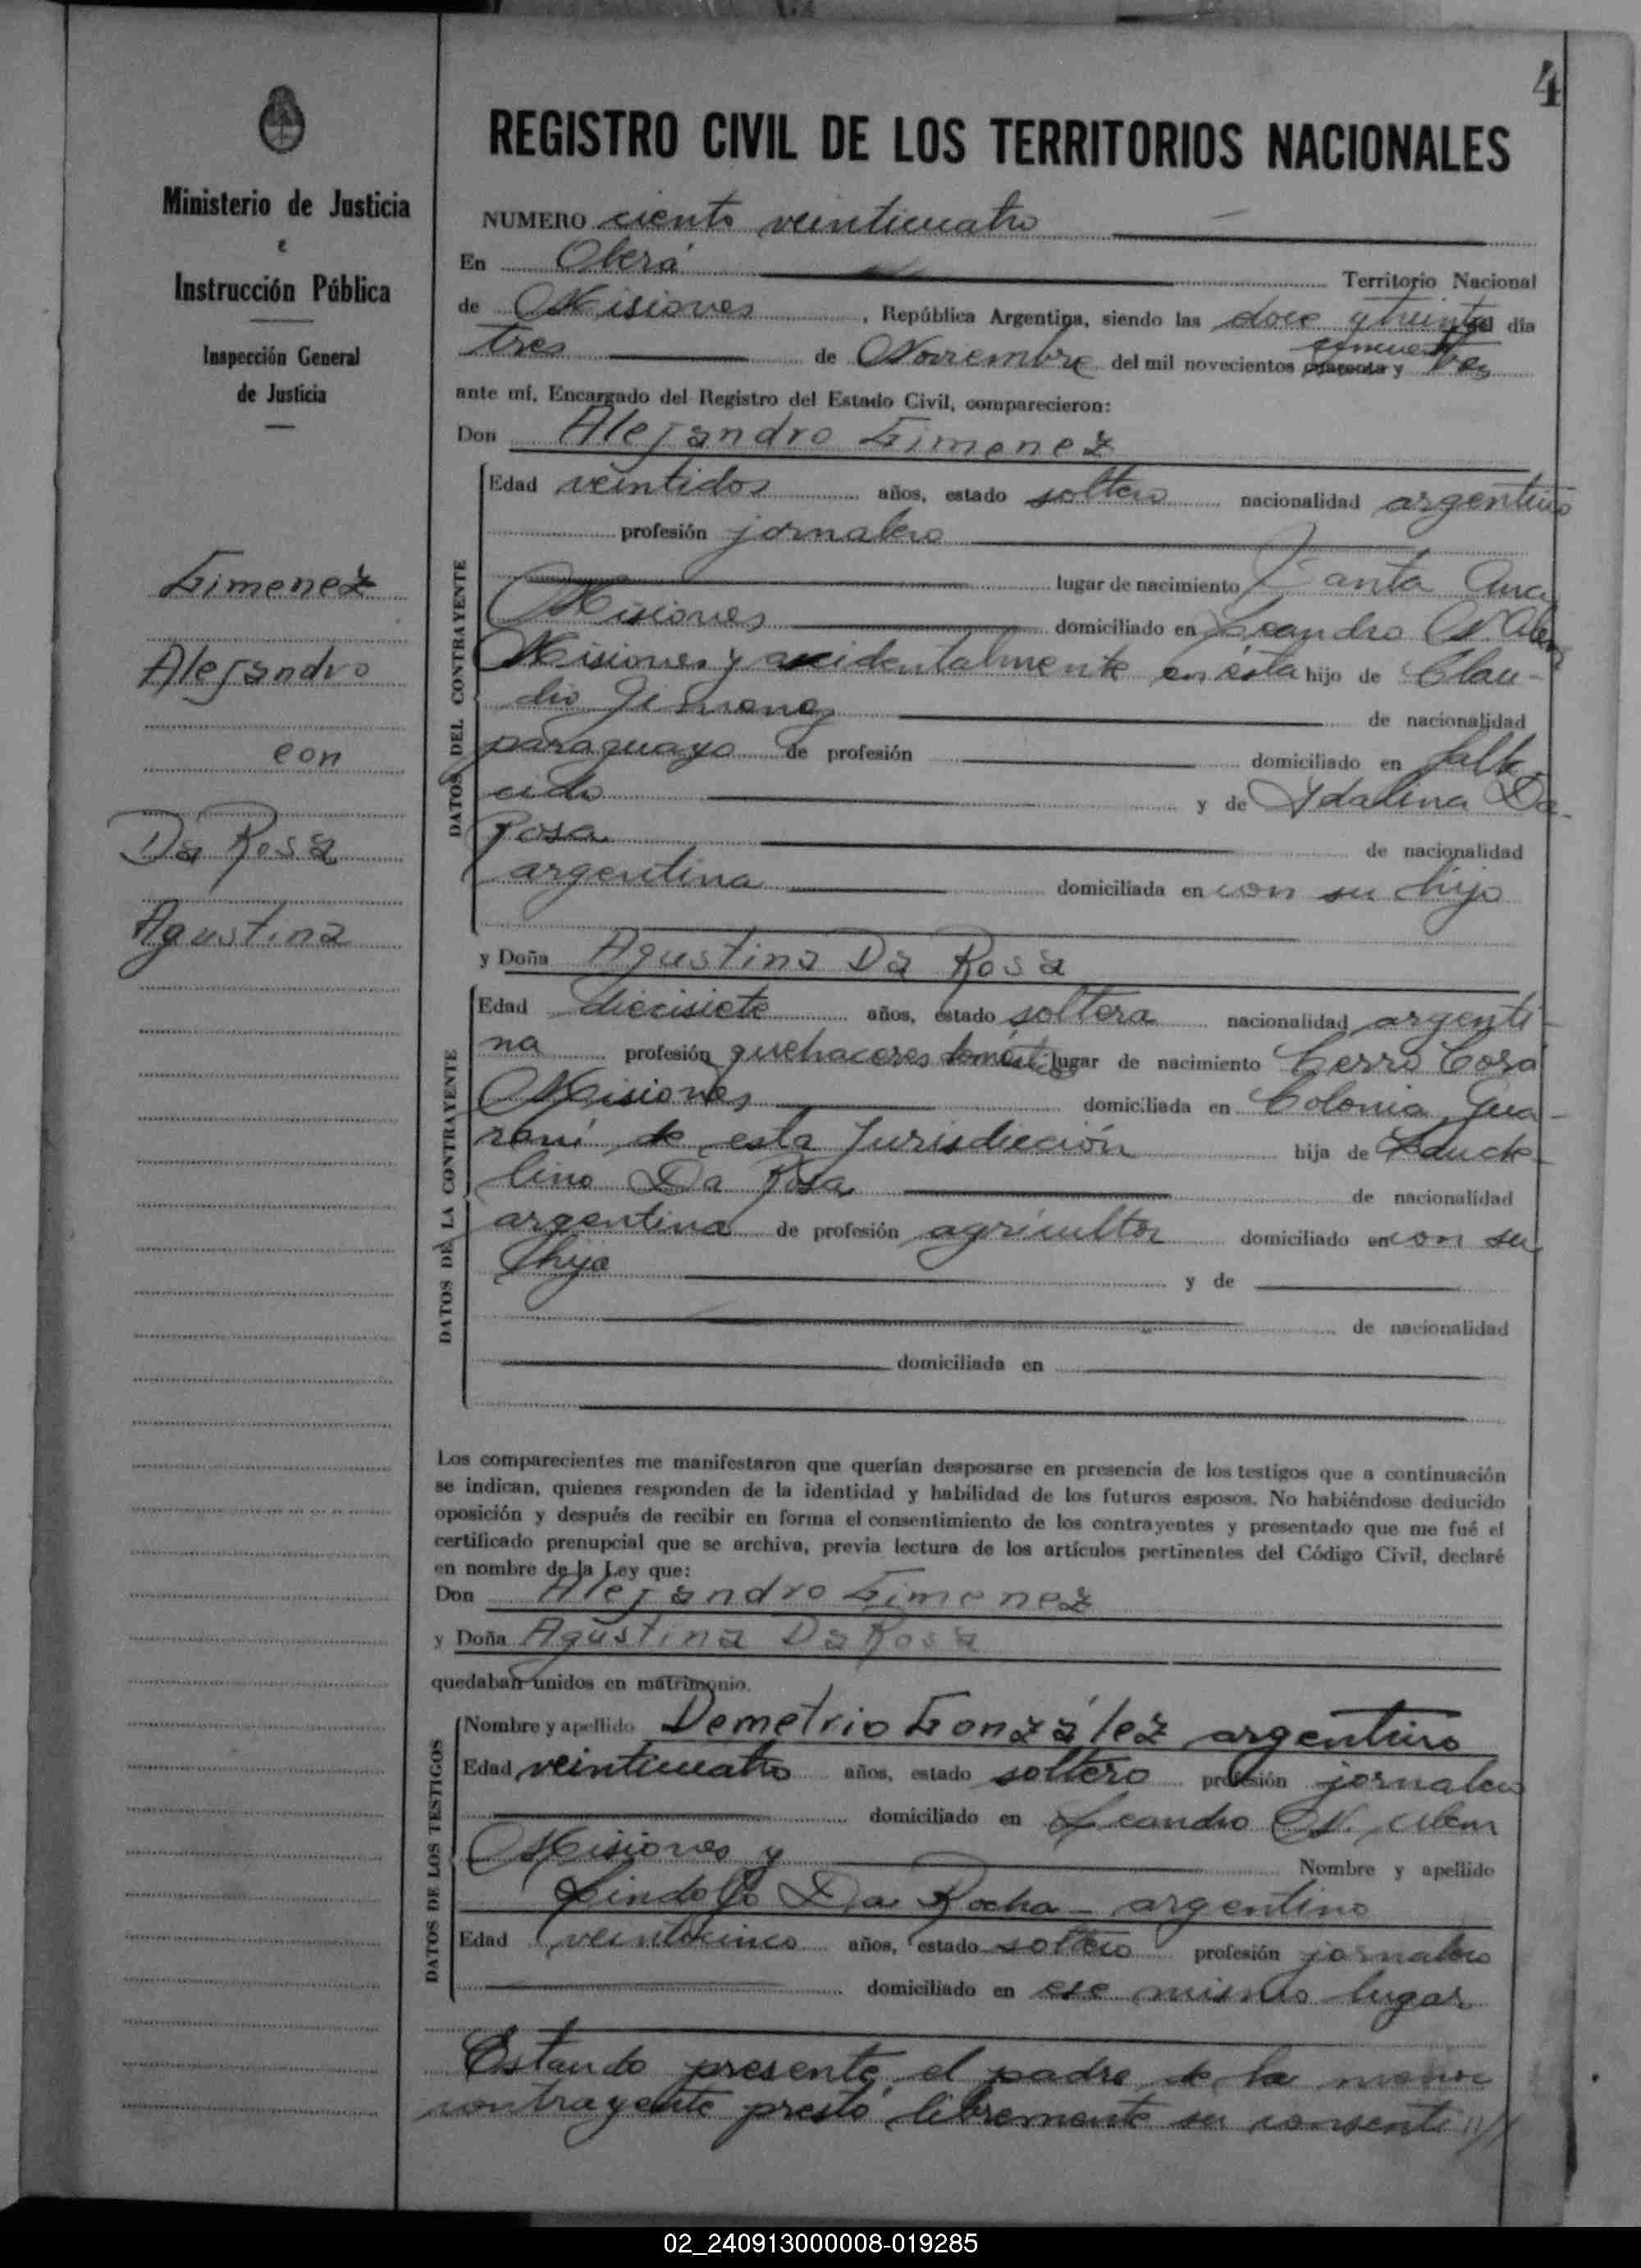 4
REGISTRO CIVIL DE LOS TERRITORIOS NACIONALES
Ministerio de Justicia
e
Instrucción Pública
Inspección General
de Justicia
Gimenez
Alejandro
con
Da Rosa
Agustina
NUMERO ciento veinticuatro
En Oberá Territorio Nacional
de Misiones, República Argentina, siendo las doce y treinta del día
cincuenta
tres de Noviembre del mil novecientos cuarenta y tres
ante mí, Encargado del Registro del Estado Civil, comparecieron:
Don Alejandro Gimenez
DATOS DEL CONTRAYENTE
Edad veintidos años, estado soltero nacionalidad argentino
profesión jornalero
lugar de nacimiento Santa Ana
Misiones domiciliado en Leandro N. Alem
Misiones y accidentalmente en ésta hijo de Clau-
dio Gimenez de nacionalidad
paraguayo de profesión domiciliado en falle
cido y de Ydalina Da
Rosa de nacionalidad
argentina domiciliada en con su hijo
y Doña Agustina Da Rosa
DATOS DE LA CONTRAYENTE
Edad diecisiete años, estado soltera nacionalidad argenti-
na profesión quehaceres domésticos lugar de nacimiento Cerro Corá
Misiones domiciliada en Colonia Gua-
raní de esta Jurisdicción hija de
lino Da Rosa de nacionalidad
argentina de profesión agricultor domiciliado en con su
hija y de
de nacionalidad
domiciliada en
Los comparecientes me manifestaron que querían desposarse en presencia de los testigos que a continuación
se indican, quienes responden de la identidad y habilidad de los futuros esposos. No habiéndose deducido
oposición y después de recibir en forma el consentimiento de los contrayentes y presentado que me fué el
certificado prenupcial que se archiva, previa lectura de los artículos pertinentes del Código Civil, declaré
en nombre de la Ley que:
Don Alejandro Gimenez
y Doña Agustina Da Rosa
quedaban unidos en matrimonio.
DATOS DE LOS TESTIGOS
Nombre y apellido Demetrio González argentino
Edad veinticuatro años, estado soltero profesión jornalero
domiciliado en Leandro N. Alem
Misiones y Nombre y apellido
Lindolfo Da Rocha - argentino
Edad veinticinco años, estado soltero profesión jornalero
domiciliado en ese mismo lugar
Estando presente el padre de la menor
contrayente prestó libremente su consenti //
02_240913000008-019285